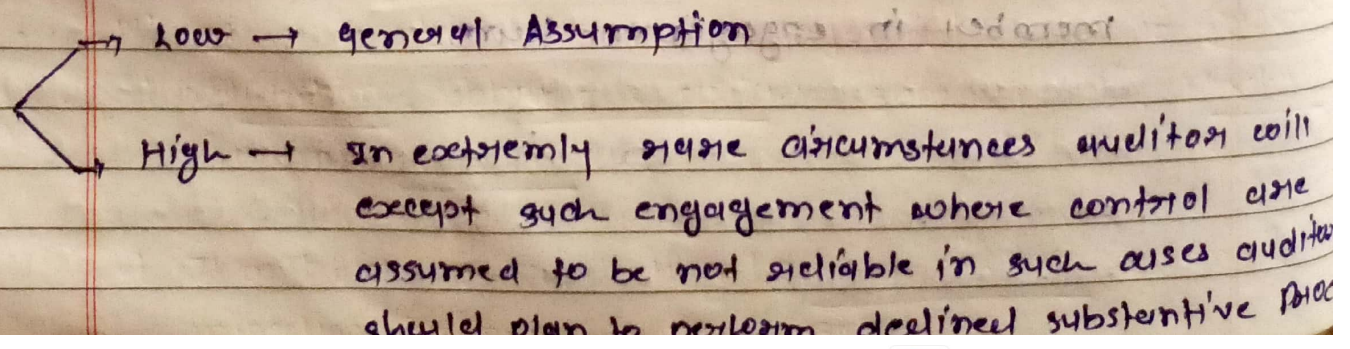 → Low → general Assumption
→ High → In extremly rare circumstances auditor will
except such engagement where control are
assumed to be not reliable in such cases
should plan to perform substantive